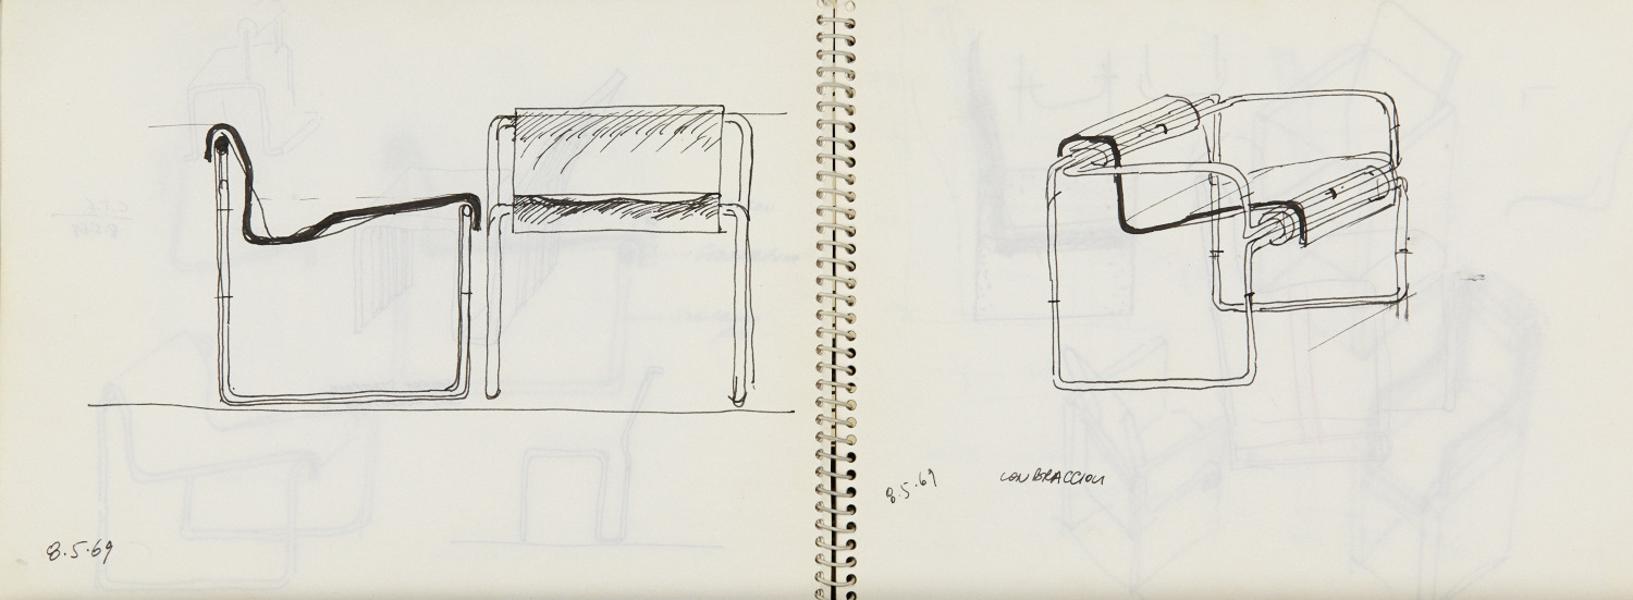 8.5.69
8.5.69
CON BRACCIOLI